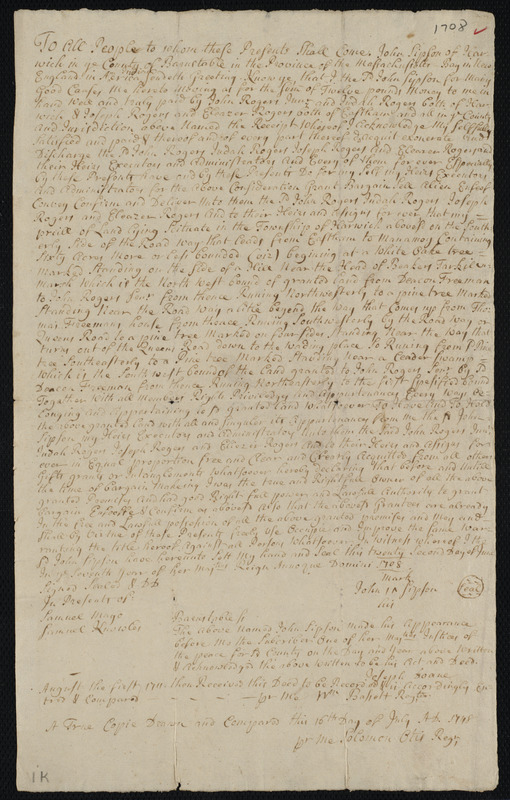 1708
To All People to whom these Presents Shall Come. John Sipson of Har
wich in ye County of Barnstable in the Province of the Massachusetts Bay in New
England in Sendeth Greeting Know ye that I the sd John Sipson for Many
Good Causes Me hereto Moving as for the Sum of Twelve pounds Money to me in
hand Well and truly paid by John Rogers Junr and Judah Rogers both of Har
wich & Joseph Rogers and Eleazer Rogers both of Eastham and all in ye County
And Jurisdiction above Named the Receipt Whereof I Acknowledge My Self fully
Satisfied and paid & thereof and of Every part thereof do
Discharge the sd John Rogers Judah Rogers Joseph Rogers and Eleazer Rogers and
their Heirs Executors and Administrators and Every of them for ever
by these Presents have and by these Presents Do for my Self my Heirs Executors
And Administrators for the above Consideration Grant Bargain Sell Alien Enfeof
Convey Confirm and Deliver unto them the sd John Rogers Judah Rogers Joseph
Rogers and Eleazer Rogers and to their Heirs and Assigns for ever that my
of Land Lying Situate in the Township of Harwich abovesd on the South
erly Side of the Road Way that leads from Eastham to Manamoy Containing
Sixty Acres More or less bounded (viz) begining at a White Oake tree
Marked Standing on the Side of a Hill Near the Head of Bakers
Marsh Which is the North west bound of granted land from Deacon Freeman
to John Rogers Senr from thence Runing Northwesterly to a pine tree Marked
Standing Near the Road Way a little beyond the Way that Comes up from Tho
mas Freemans house from thence Runing Southwesterly by the Road Way or
Queens Road to a pine tree Marked on four sides Standing Near the Way that
turns out of the Queens Road down to the wading place so Runing from sd Pine
tree Southeasterly to a Pine tree Marked Standing Near a Ceader Swamp
which is the South west bound of the land granted to John Rogers Senr by sd
Deacon Freeman from thence Runing Northeasterly to the first specified bound
Together with all Members Rights Priviledges and Appurtenances Every Way be
longing and Appertaining to sd granted land Whatsoever To Have And To Hold
the above granted land with all and Singular its Appurtenances from Me the sd John
Sipson my Heirs Executors and Administrators to them the sd John Rogers Junr
Judah Rogers Joseph Rogers and Eleazer Rogers and to their Heirs and Assigns for
ever in Equal proportion free and Clear and Clearly Acquitted from all other
Gifts grants or Intanglements Whatsoever hereby declaring that before and untill
the time of this bargain making I was the true and Rightfull owner of all the above
granted Premises And had good Right full power and Lawfull Authority to grant
bargain Enfeoffe & Confirm as abovesd Also that the abovesd Grantees are already
In the free and Lawfull possession of all the above granted Premises and may and
Shall by Virtue of these Presents freely Use Occupie and Improve the Same War
ranting the title hereof Against all Persons Whatsoever In Witness whereof I the
sd John Sipson have hereunto Set My hand and Seal this twenty Second Day of June
In ye Seventh Year of her Majtys Reign Annoque Domini 1708
Signed Sealed & DD
In Presents of
mark
John Sipson
his
Seal
Samuel Mayo
Samuel Knowles
Barnstable ss
The above Named John Sipson made his Appearance
before Me the Subscriber One of her Majtys Justices of
the peace for sd County on the Day and Year above Written
& Acknowledged the above written to be his Act and Deed.
Joseph Doane
August the first 1711 then Received this Deed to be Recorded & is Accordingly en
tred & Compared
pr Me Wm Bassett Regstr
A True Copie Drawn and Compared this 16th Day of July AD 1748
pr me Solomon Otis Regr
1K